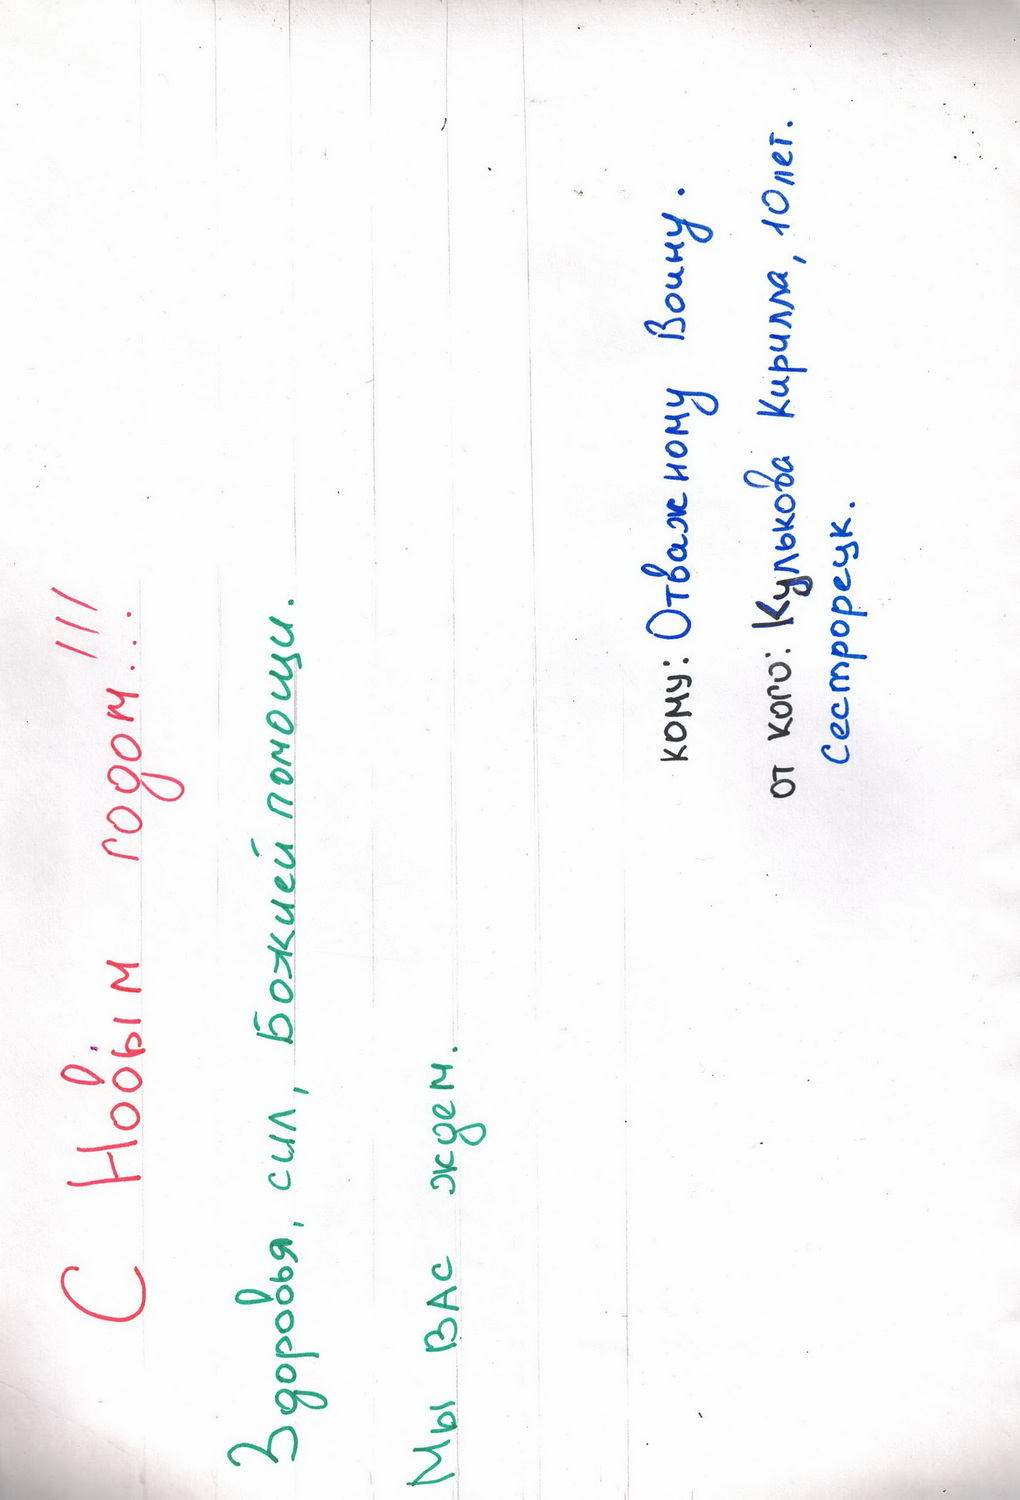 С Новым годом!!!
Здоровья, сил, Божией помощи.
Мы ВАС ждем.
кому: Отважному Воину.
от кого: Кулькова Кирилла, 10 лет.
Сестрорецк.